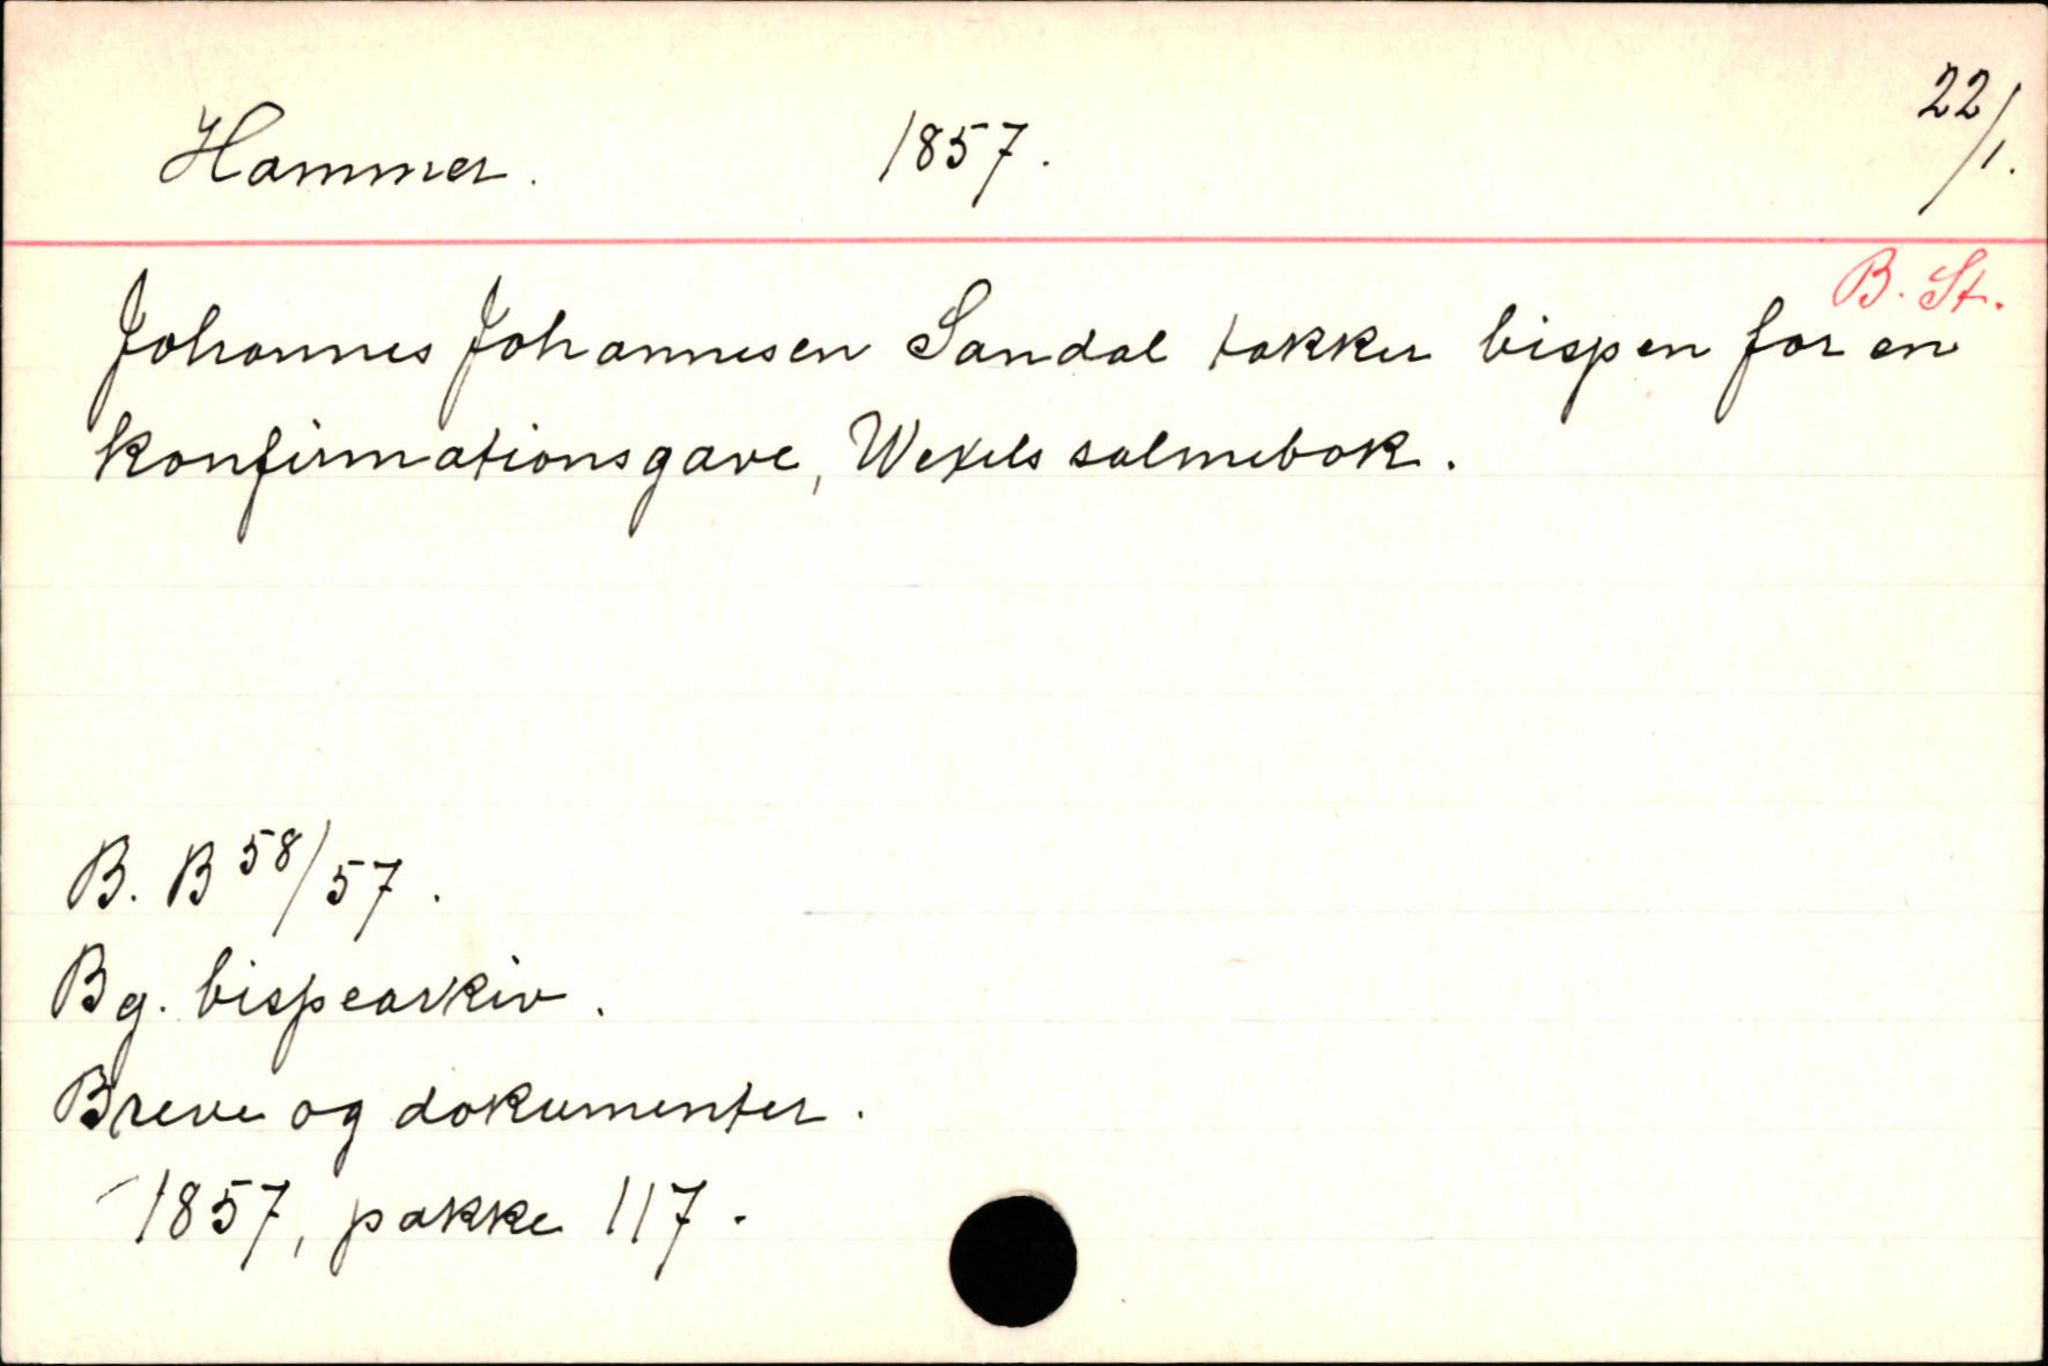 Hammer. 1857. 22/1.
B. St.
Johannes Johannesen Sandal takker bispen for en
konfirmationsgave, Wexels salmebok.
B. B 58/57.
Bg. bispearkiv.
Breve og dokumenter.
1857, pakke 117.